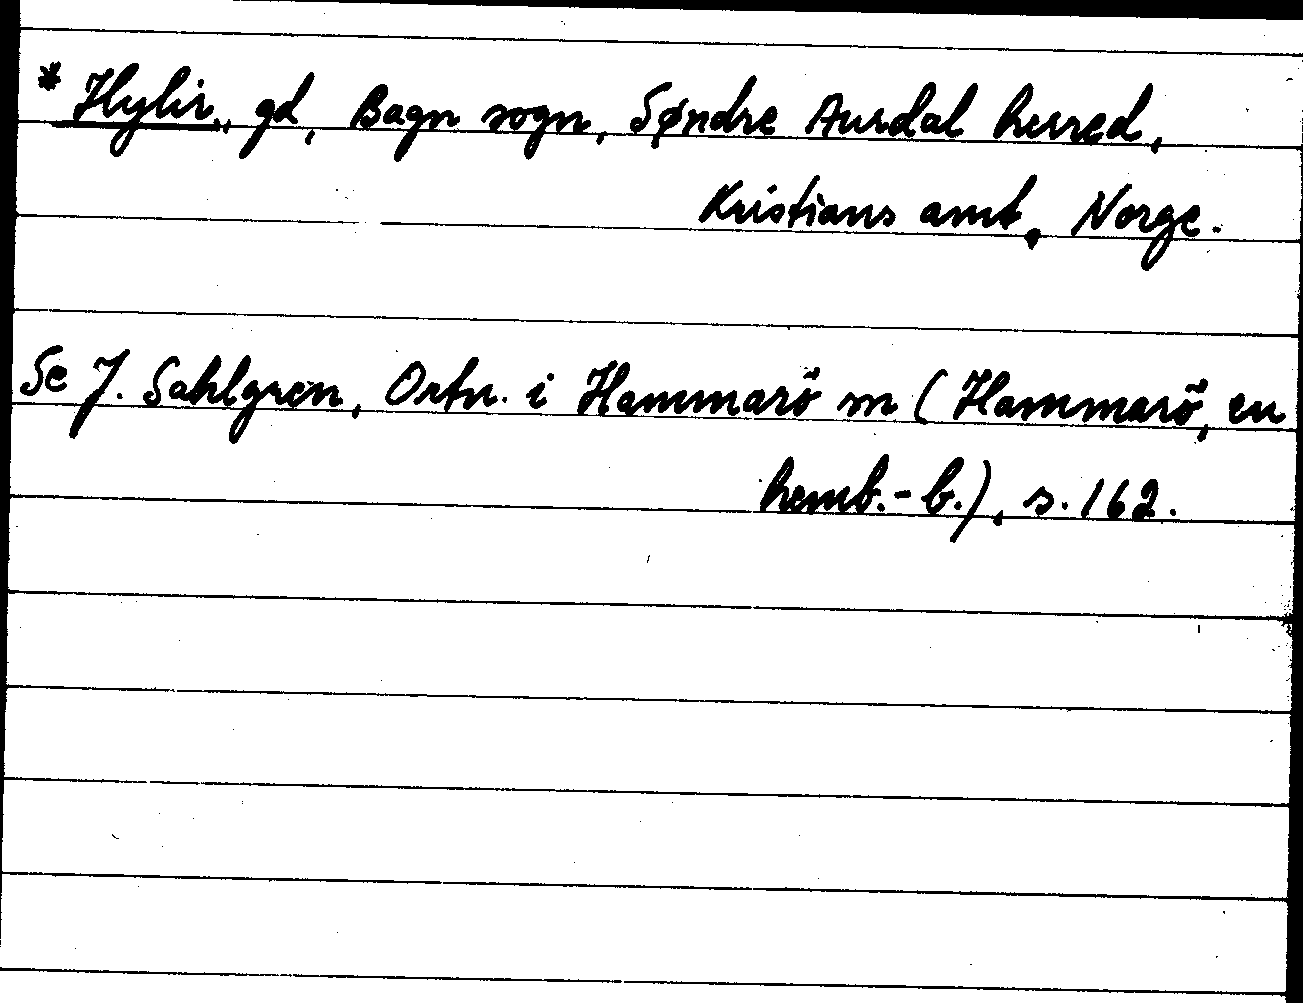 * Hylir, gd, Bagn sogn, Søndre Aurdal herred,
Kristians amt, Norge.
Se J. Sahlgren, Ortn. i Hammarö sn (Hammarö, en
hemb.-b.), s. 162.